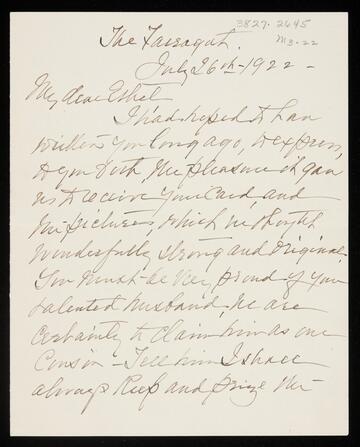 3827.2645
M3-22
The Farragut.
July 26th - 1922 -
My dear Ethel
I had hoped to have
written you long ago, to express
to you both the pleasure it gave
us to receive your Card and
the pictures, which we thought
wonderfully strong and original.
You must be very proud of your
talented husband, we are
certainly to claim him as our
Cousin - Tell him I shall
always keep and prize the -